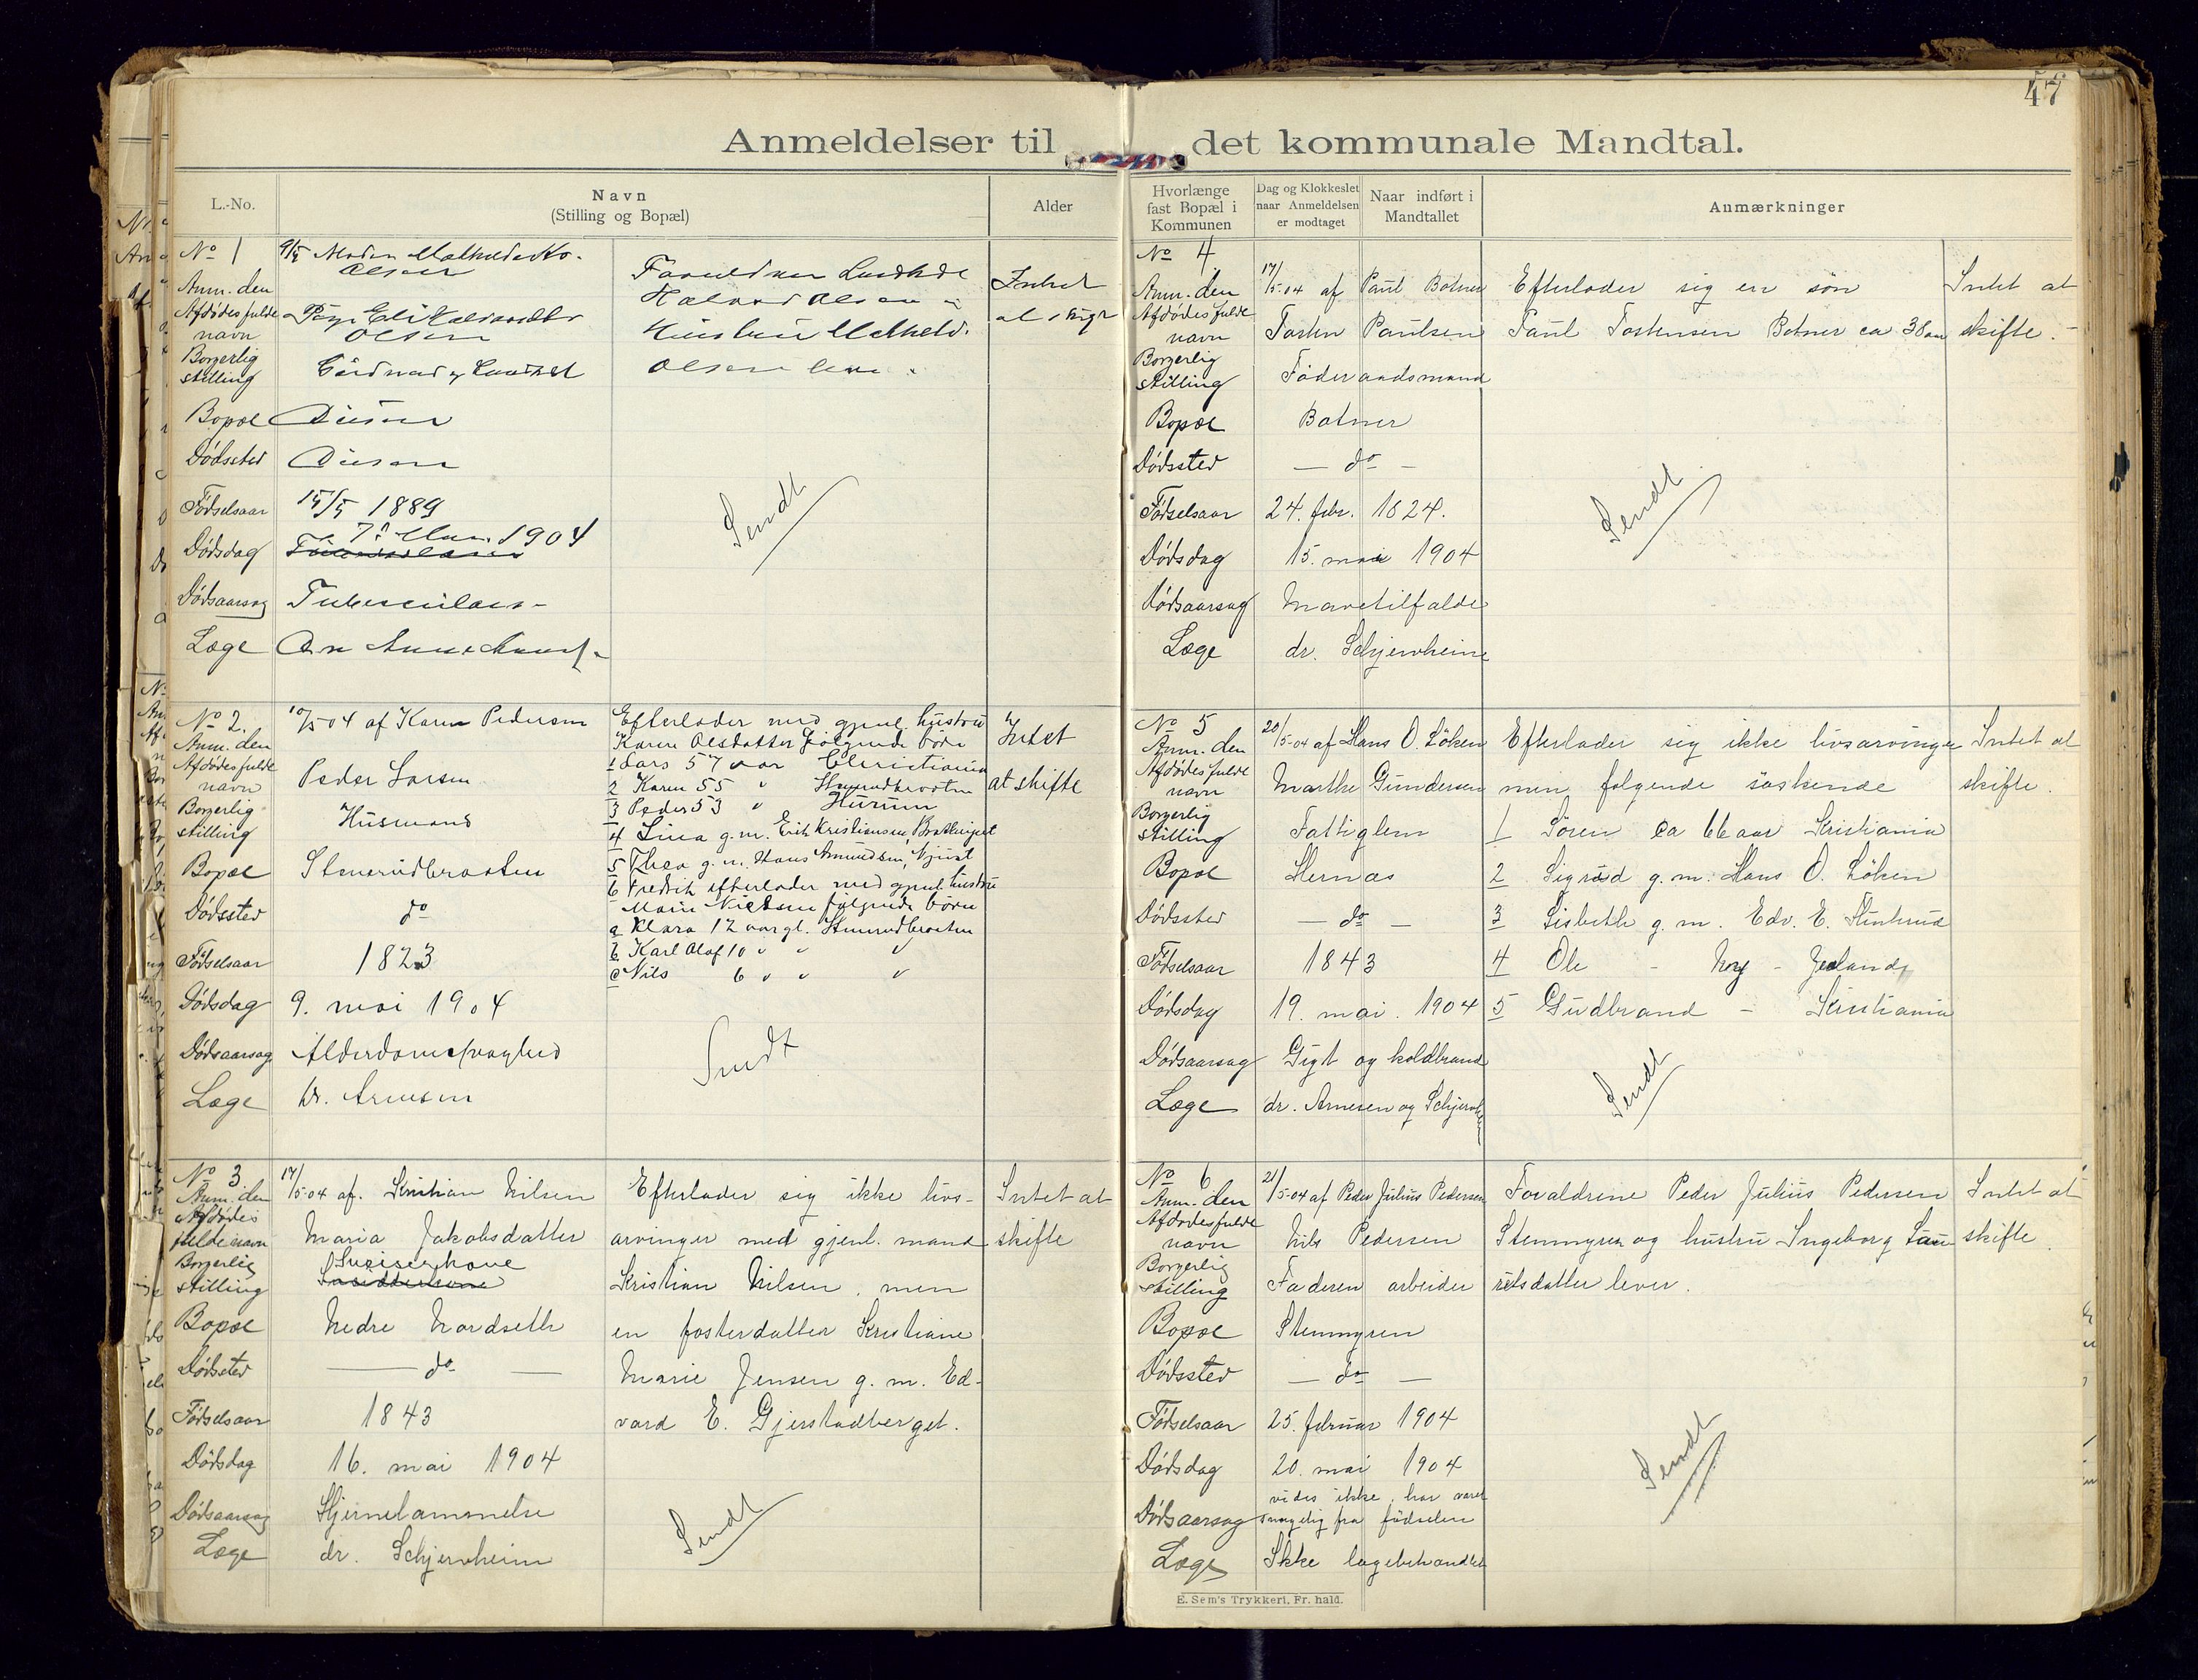 47
Anmeldelser til det kommunale Mandtal.
L.-No.
Navn
(Stilling og Bopæl)
Alder
Hvorlænge
fast Bopæl i
Kommunen
Dag og Klokkeslet
naar Anmeldelsen
er modtaget
Naar indført i
Mandtallet
Anmærkninger
No 1
9/5 Moder
Olsen
Anm. den
Afdødes fulde
navn
Olsen
Borgerlig
stilling
Bopæl
Dødssted
Fødselsaar 15/5 1889
Dødsdag 1904
Dødsaarsag Tuberculose
Læge
Halvor Olsen
Hustru
Olsen lever
Intet
at skifte
Sendt
No 2.
Anm. den 10/5 04 af Karen Pedersen
Afdødes fulde
navn Peder Larsen
Borgerlig
stilling Husmand
Bopæl Stenerudbraaten
Dødssted do
Fødselsaar 1823
Dødsdag 9. mai 1904
Dødsaarsag Alderdomssvaghed
Læge Dr. Arnesen
Efterlader med gjenl. hustru
Karen Olsdatter følgende børn
1 Lars 57 aar Christiania
2 Karen 55 " Stenerudbraaten
3 Peder 53 " Hurum
4 Lina g. m. Erik Kristiansen
5 Thea g. m. Hans Amundsen,
6 Fredrik efterlader med gjenl. hustru
Marie Nielsen følgende børn
a Klara 12 aar gl. Stenerudbraaten
b Karl Olaf 10 " " "
c Nils 6 " " "
Intet
at skifte
Sendt
No 3
Anm. den 17/5 04 af. Kristian Nilsen
Afdødes
fulde navn Maria Jakobsdatter
Borgerlig Inderstkone
stilling
Bopæl Nedre Nordseth
Dødssted — do —
Fødselsaar 1843
Dødsdag 16. mai 1904
Dødsaarsag Hjernelammelse
Læge dr. Schjervheim
Efterlader sig ikke livs-
arvinger med gjenl. mand
Kristian Nilsen, men
en fosterdatter Kristiane
Marie Jensen g. m. Ed-
vard E. Gjerstadberget.
Intet at
skifte
Sendt
No 4
Anm. den 17/5 04 af Paul Botner
Afdødes fulde
navn Tosten Paulsen
Borgerlig
stilling Føderaadsmand
Bopæl Botner
Dødssted — do —
Fødselsaar 24. febr. 1824.
Dødsdag 15. mai 1904
Dødsaarsag Mavetilfælde
Læge dr. Schjervheim
Efterlader sig en søn
Paul Tostensen Botner ca 38 aar
Intet at
skifte.
Sendt
No 5
Anm. den 20/5 04 af Hans O. Løken
Afdødes fulde
navn Marthe Gundersen
Borgerlig
stilling Fattiglem
Bopæl Hernæs
Dødssted — do —
Fødselsaar 1843
Dødsdag 19. mai. 1904
Dødsaarsag Gigt og koldbrand
Læge dr. Arnesen og Schjervheim
Efterlader sig ikke livsarvinger
men følgende søskende
1 Søren ca 66 aar Kristiania
2 Sigrid g. m. Hans O. Løken
3 Lisbeth g. m. Edv. E.
4 Ole -
5 Gudbrand - Kristiania
Intet at
skifte.
Sendt
No 6
Anm. den 21/5 04 af Peder Julius Pedersen
Afdødes fulde
navn Nils Pedersen
Borgerlig
stilling Faderen arbeider
Bopæl Stenmyren
Dødssted — do —
Fødselsaar 25. februar 1904
Dødsdag 20. mai 1904
vides ikke, har været
Dødsaarsag svagelig fra fødselen
Læge Ikke lægebehandlet
Forældrene Peder Julius Pedersen
Stenmyren og hustru Ingeborg Lau-
ritsdatter lever.
Intet at
skifte.
Sendt
E. Sem's Trykkeri, Fr. hald.